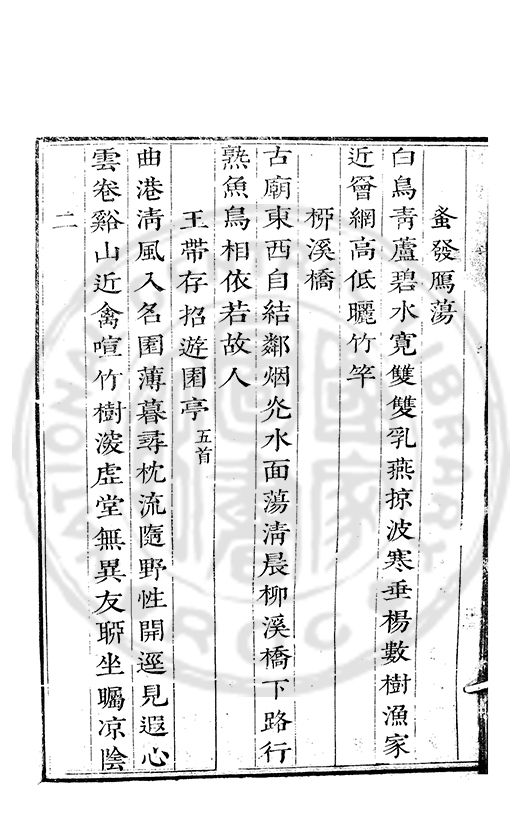 蚤發鴈蕩
白鳥靑蘆碧水寛雙雙乳燕掠波寒垂楊數樹漁家
近罾網高低曬竹竿
桺溪橋
古廟東西自結鄰烟光水面蕩淸晨柳溪橋下路行
熟魚鳥相依若故人
王帶存招遊園亭 五首
曲港淸風入名園薄暮尋枕流隨野性開逕見遐心
雲卷谿山近禽喧竹樹深虚堂無異友聊坐矚凉陰
二